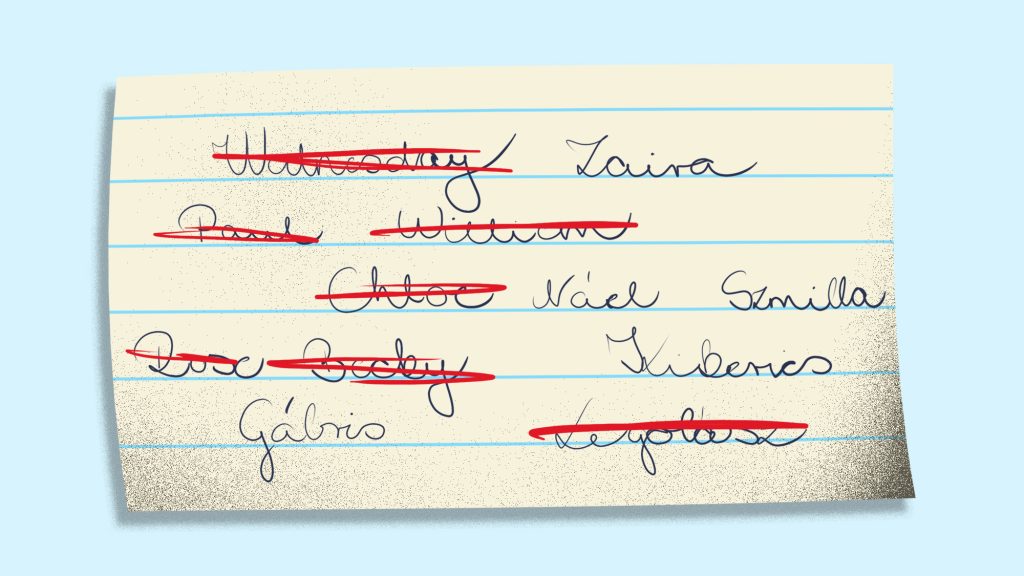 Wednesday Zaira
Paul William
Chloe Náel Szmilla
Rose Becky Tiberios
Gábris Legolász